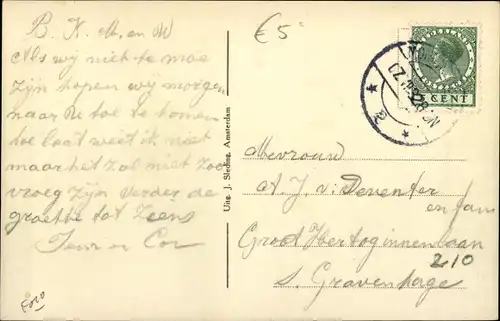 B. K. M. en W
Als wij niet te moe
zijn hopen wij morgen
naar U toe te komen
hoe laat weet ik niet
maar het zal niet zoo
vroeg zijn verder de
groette tot Ziens
en Cor
Foto
€ 5
Uitg. J. Sleding, Amsterdam
CENT
Mevrouw
A. J. v. Deventer
en fam
Groot Hertoginnenlaan
210
s. Gravenhage